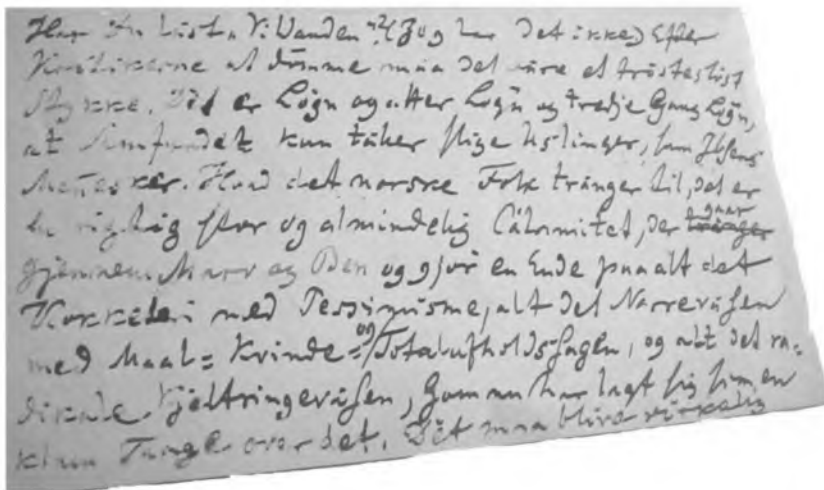 Har Du læst „Vildanden"? (Jeg har det ikke) Efter
Kritikerne at dømme maa det være et trøsteslöst
Stykke. Det er Lögn og atter Lögn og tredje Gang Lögn,
at Samfundet kun tæller slige Uslinger, som Ibsens
Mennesker. Hvad det norske Folk trænger til, det er
en rigtig stor og almindelig Calamitet, der gaar
gjennem Marv og Ben og gjör en Ende paa alt det
med Pessimisme, alt det Narrevæsen
med Maal= Kvinde= og Totalafholdssagen, og alt det ra=
dikale Kjæltringevæsen, som nu har lagt sig som en
klam Taage over det. Det maa blive virkelig